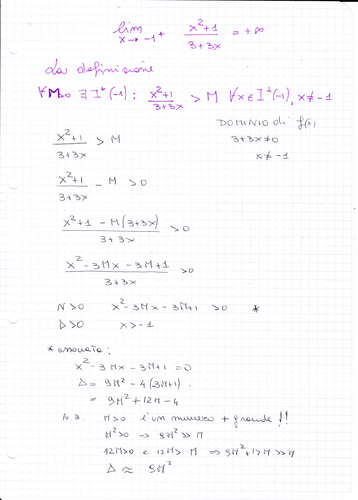 lim x→-1⁺ x²+1 / 3+3x = +∞
La definizione
∀M>0 ∃ I⁺(-1) : x²+1 / 3+3x > M ∀x ∈ I⁺(-1), x≠-1
DOMINIO di f(x)
3+3x≠0
x≠-1
x²+1 / 3+3x > M
x²+1 / 3+3x - M > 0
x²+1 - M(3+3x) / 3+3x > 0
x²-3Mx-3M+1 / 3+3x > 0
N>0 x²-3Mx-3M+1 >0 *
D>0 x>-1
* x²-3Mx-3M+1=0
Δ= 9M²-4(-3M+1)
= 9M²+12M-4
N.B. M>0 è un numero + grande!!
M²>0 → 9M² >> M
12M>0 e 12M > M ⇒ 9M²+12M >> M
Δ ≈ 9M²